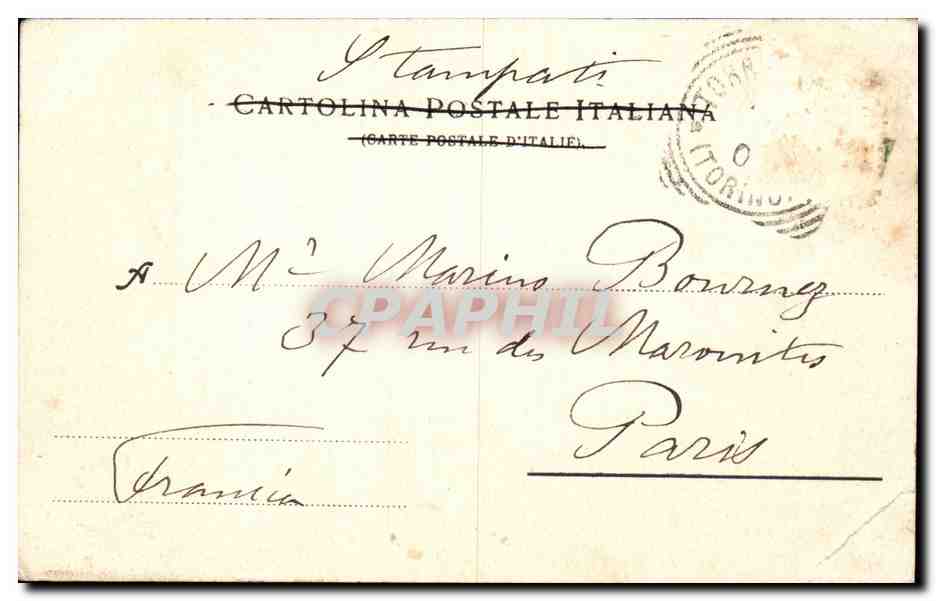 Stampati
CARTOLINA POSTALE ITALIANA
(CARTE POSTALE D'ITALIE).
0
(TORINO)
A Mr Marino Bournez
CPAPHIL
37 rue des Maronites
Paris
Francia